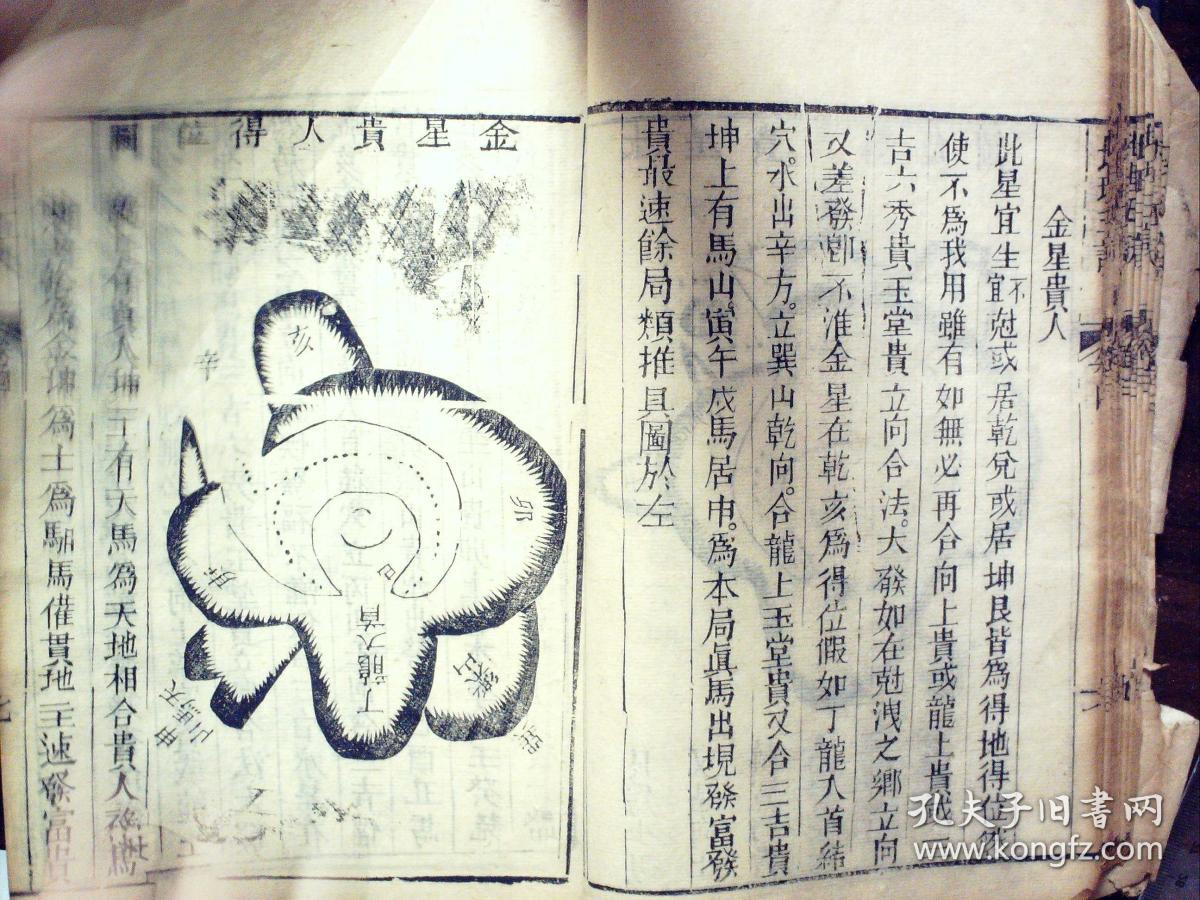 金星貴人
此星宜生宜不尅或居乾兌或居坤艮皆為得地得位
使不為我用雖有如無必再合向上貴或龍上貴或三
吉六秀貴玉堂貴立向合法。大發如在尅洩之鄉立向
又差發卽不准金星在乾亥為得位假如丁龍入首結
穴。水出辛方。立巽山乾向。合龍上玉堂貴又合三吉貴
坤上有馬山。寅午戌馬居申。為本局眞馬出現發富發
貴最速餘局類推具圖於左
金星貴人得位
圖
亥
辛
卯
巳
丁龍入首
天馬山
上有貴人坤上有天馬為天地相合貴人
乾為金坤為土為馹馬催貫地主速發富貴
孔夫子旧书网
www.kongfz.com